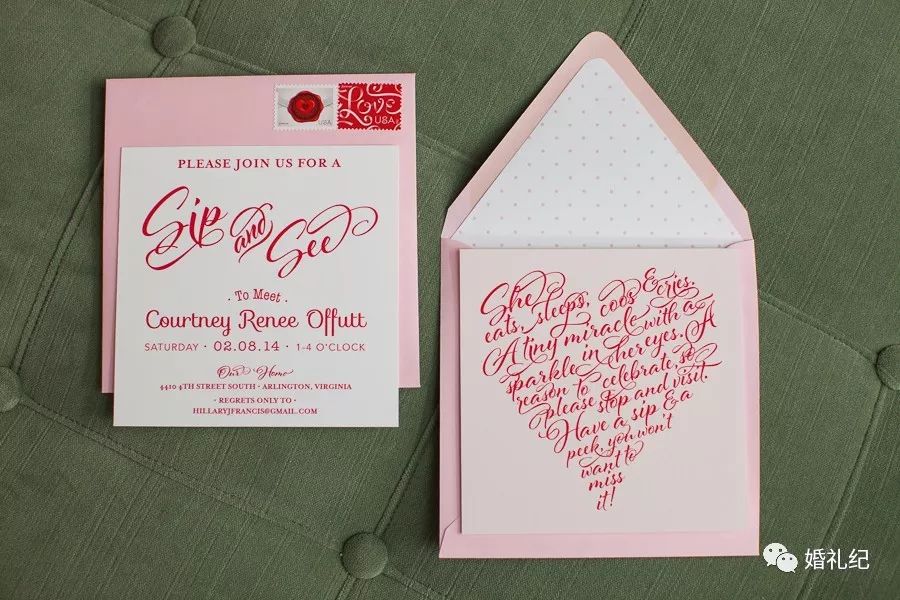 LOVE
USA
USA
PLEASE JOIN US FOR A
Sip and See
· To Meet ·
Courtney Renee Offutt
SATURDAY · 02.08.14 · 1-4 O'CLOCK
Our Home
4410 4TH STREET SOUTH · ARLINGTON, VIRGINIA
· REGRETS ONLY TO ·
HILLARYJFRANCIS@GMAIL.COM
She
eats, sleeps, coos & cries.
A tiny miracle with a
sparkle in her eyes. A
reason to celebrate so
please stop and visit.
Have a sip & a
peek, you won't
want to
miss
it!
婚礼纪